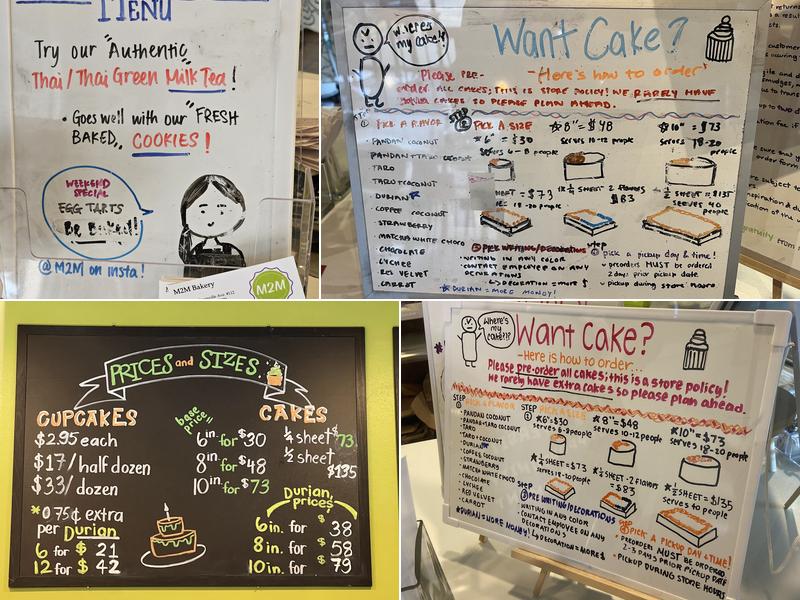 MENU
Try our "Authentic"
Thai / Thai Green Milk Tea!
• Goes well with our "FRESH
BAKED" COOKIES!
WEEKEND
SPECIAL
EGG TARTS
Be Baked!!
@M2M on Insta!
M2M Bakery
M2M
Where's
my cake?!
Want Cake?
Please pre-
-Here's how to order-
order all cakes; this is store policy! We rarely have
extra cakes so please plan ahead.
STEP ① PICK A FLAVOR
• PANDAN COCONUT
PANDAN + TARO COCONUT
TARO
TARO + COCONUT
DURIAN*
COFFEE COCONUT
STRAWBERRY
MATCHA WHITE CHOCO
CHOCOLATE
LYCHEE
RED VELVET
CARROT
STEP ② PICK A SIZE
★ 6" = $30
serves 6-8 people
★ 8" = $48
serves 10-12 people
★ 10" = $73
serves 18-20 people
SHEET = $73
18-20 people
SHEET 2 FLAVORS
$83
½ SHEET = $135
SERVES 40
people
③ PICK WRITING/DECORATIONS
• WRITING IN ANY COLOR
• CONTACT EMPLOYEE ON ANY
DECORATIONS
↳ DECORATION = more $
★ DURIAN = MORE MONEY!
step
④ pick a pickup day & time!
✓ preorders MUST be ordered
2 days prior pickup date
✓ pickup during store hours
PRICES and SIZES
CUPCAKES
$2.95 each
$17/half dozen
$33/dozen
*075¢ extra
per Durian
6 for $21
12 for $42
base
price!
CAKES
6in for $30
8in for $48
10in for $73
¼ sheet $73
½ sheet
$135
Durian
prices*
6in. for $38
8in. for $58
10in. for $79
Where's
my
cake?!?
Want Cake?
-Here is how to order...
Please pre-order all cakes; this is a store policy!
We rarely have extra cakes so please plan ahead.
STEP ① PICK A FLAVOR
• PANDAN COCONUT
• PANDAN+TARO COCONUT
• TARO
• TARO + COCONUT
• DURIAN*
• COFFEE COCONUT
• STRAWBERRY
• MATCHA WHITE CHOCO
• CHOCOLATE
• LYCHEE
• RED VELVET
• CARROT
*DURIAN = MORE MONEY!
STEP ② PICK A SIZE
★6" = $30
serves 6-8 people
★8" = $48
serves 10-12 people
★10" = $73
serves 18-20 people
★¼ SHEET = $73
serves 18-20 people
★¼ SHEET - 2 FLAVORS
= $83
★½ SHEET = $135
serves 40 people
STEP
③ PICK WRITING/DECORATIONS
• WRITING IN ANY COLOR
• CONTACT EMPLOYEE ON ANY
DECORATIONS
↳ DECORATION = MORE $
④ PICK A PICKUP DAY & TIME!
• PREORDERS MUST BE ORDERED
2-3 DAYS PRIOR PICKUP DATE
• PICKUP DURING STORE HOURS